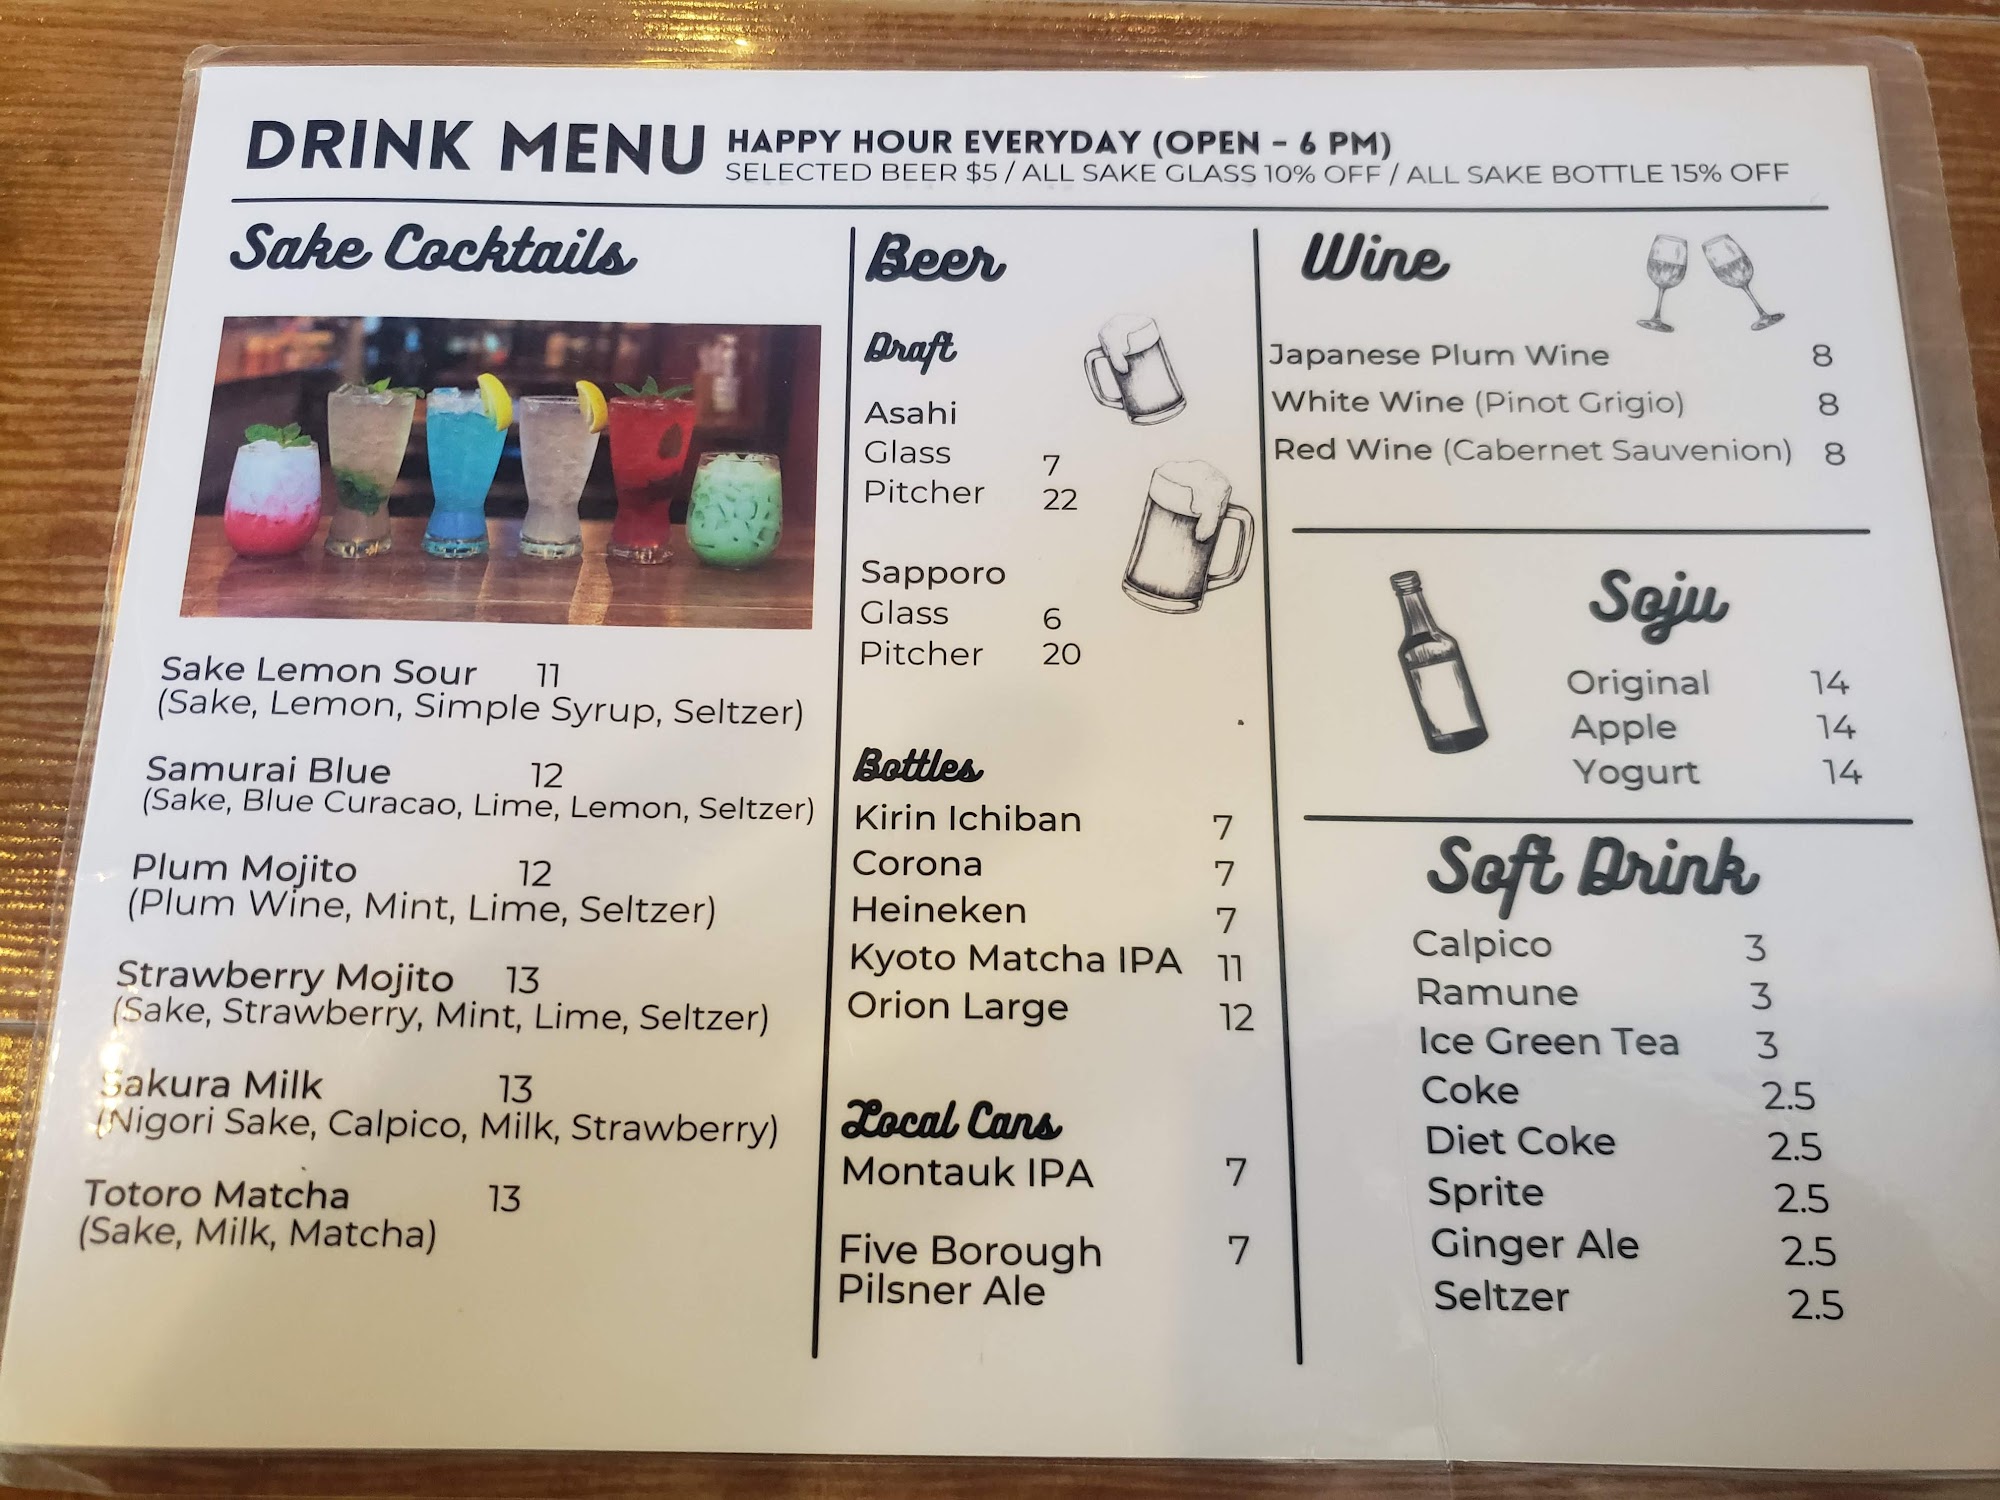 DRINK MENU
HAPPY HOUR EVERYDAY (OPEN - 6 PM)
SELECTED BEER $5 / ALL SAKE GLASS 10% OFF / ALL SAKE BOTTLE 15% OFF
Sake Cocktails
Sake Lemon Sour 11
(Sake, Lemon, Simple Syrup, Seltzer)
Samurai Blue 12
(Sake, Blue Curacao, Lime, Lemon, Seltzer)
Plum Mojito 12
(Plum Wine, Mint, Lime, Seltzer)
Strawberry Mojito 13
(Sake, Strawberry, Mint, Lime, Seltzer)
Sakura Milk 13
(Nigori Sake, Calpico, Milk, Strawberry)
Totoro Matcha 13
(Sake, Milk, Matcha)
Beer
Draft
Asahi
Glass 7
Pitcher 22
Sapporo
Glass 6
Pitcher 20
Bottles
Kirin Ichiban 7
Corona 7
Heineken 7
Kyoto Matcha IPA 11
Orion Large 12
Local Cans
Montauk IPA 7
Five Borough 7
Pilsner Ale
Wine
Japanese Plum Wine 8
White Wine (Pinot Grigio) 8
Red Wine (Cabernet Sauvenion) 8
Soju
Original 14
Apple 14
Yogurt 14
Soft Drink
Calpico 3
Ramune 3
Ice Green Tea 3
Coke 2.5
Diet Coke 2.5
Sprite 2.5
Ginger Ale 2.5
Seltzer 2.5